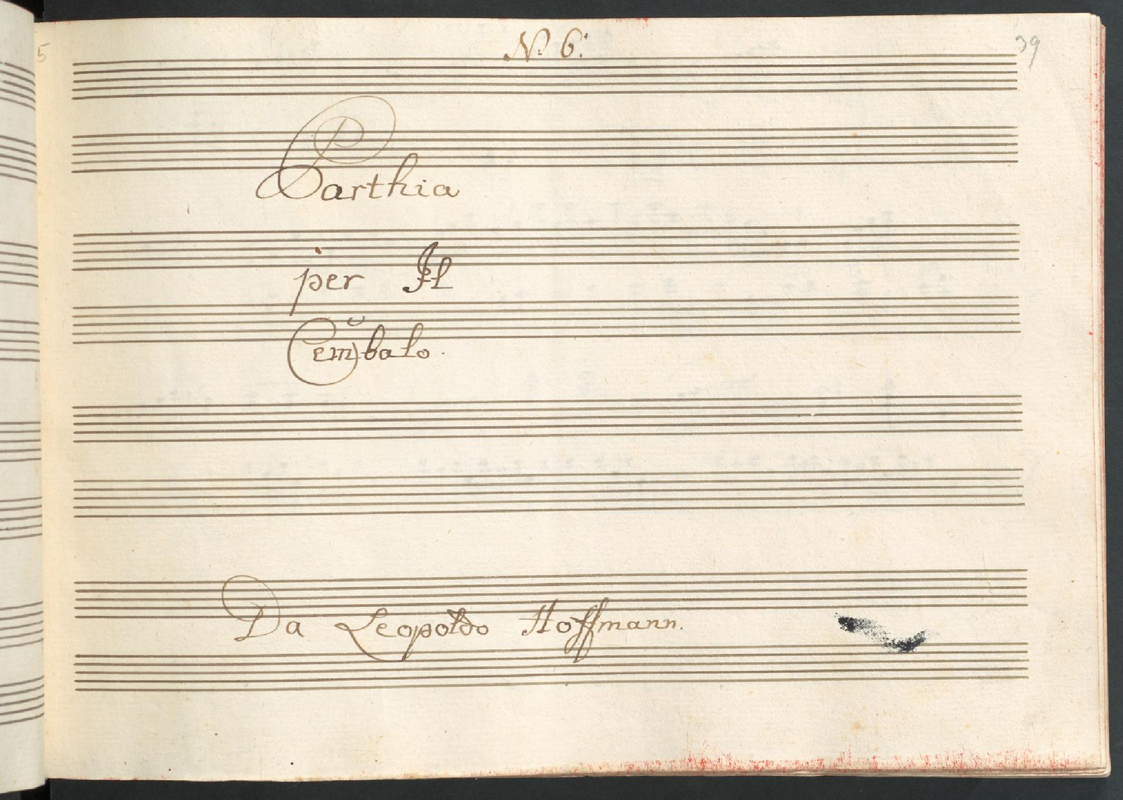 N. 6:
39
5
Parthia
per Il
Cembalo.
Da Leopoldo Hoffmann.